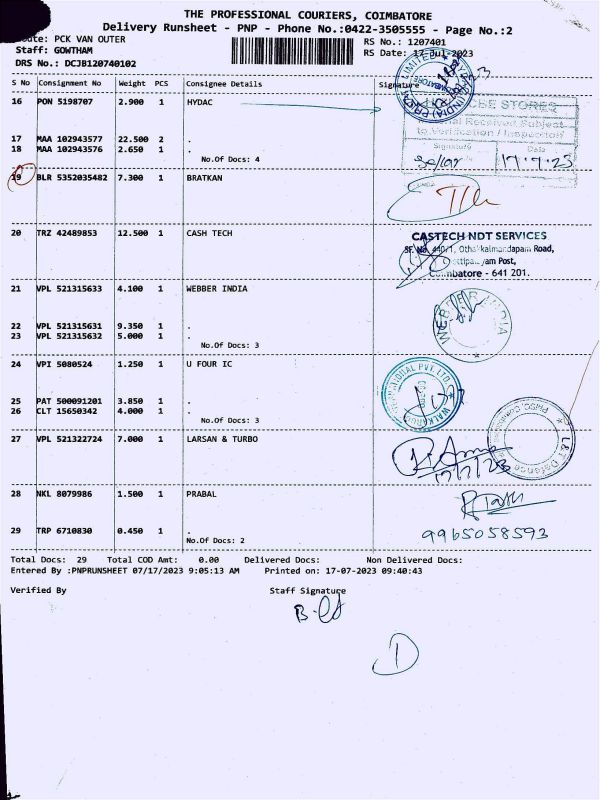 THE PROFESSIONAL COURIERS, COIMBATORE
Delivery Runsheet - PNP - Phone No.:0422-3505555 - Page No.:2
PCK VAN OUTER
RS No.: 1207401
Staff: GOWTHAM
RS Date: 17-Jul-2023
DRS No.: DCJB120740102
S No Consignment No Weight PCS Consignee Details Signature
16 PON 5198707 2.900 1 HYDAC
17 MAA 102943577 22.500 2 .
18 MAA 102943576 2.650 1 .
No.Of Docs: 4
STORES
Received Subject
to Verification / Inspection
Signature Date
17.7.23
19 BLR 5352035482 7.300 1 BRATKAN
20 TRZ 42489853 12.500 1 CASH TECH
CASTECH NDT SERVICES
Road,
Post,
641 201.
21 VPL 521315633 4.100 1 WEBBER INDIA
22 VPL 521315631 9.350 1 .
23 VPL 521315632 5.000 1 .
No.Of Docs: 3
WEBBER INDIA
24 VPI 5080524 1.250 1 U FOUR IC
25 PAT 500091201 3.850 1 .
26 CLT 15650342 4.000 1 .
No.Of Docs: 3
27 VPL 521322724 7.000 1 LARSAN & TURBO
17/7/23
L&T Defence
28 NKL 8079986 1.500 1 PRABAL
29 TRP 6710830 0.450 1 .
No.Of Docs: 2
9965058593
Total Docs: 29 Total COD Amt: 0.00 Delivered Docs: Non Delivered Docs:
Entered By :PNPRUNSHEET 07/17/2023 9:05:13 AM Printed on: 17-07-2023 09:40:43
Verified By Staff Signature
D